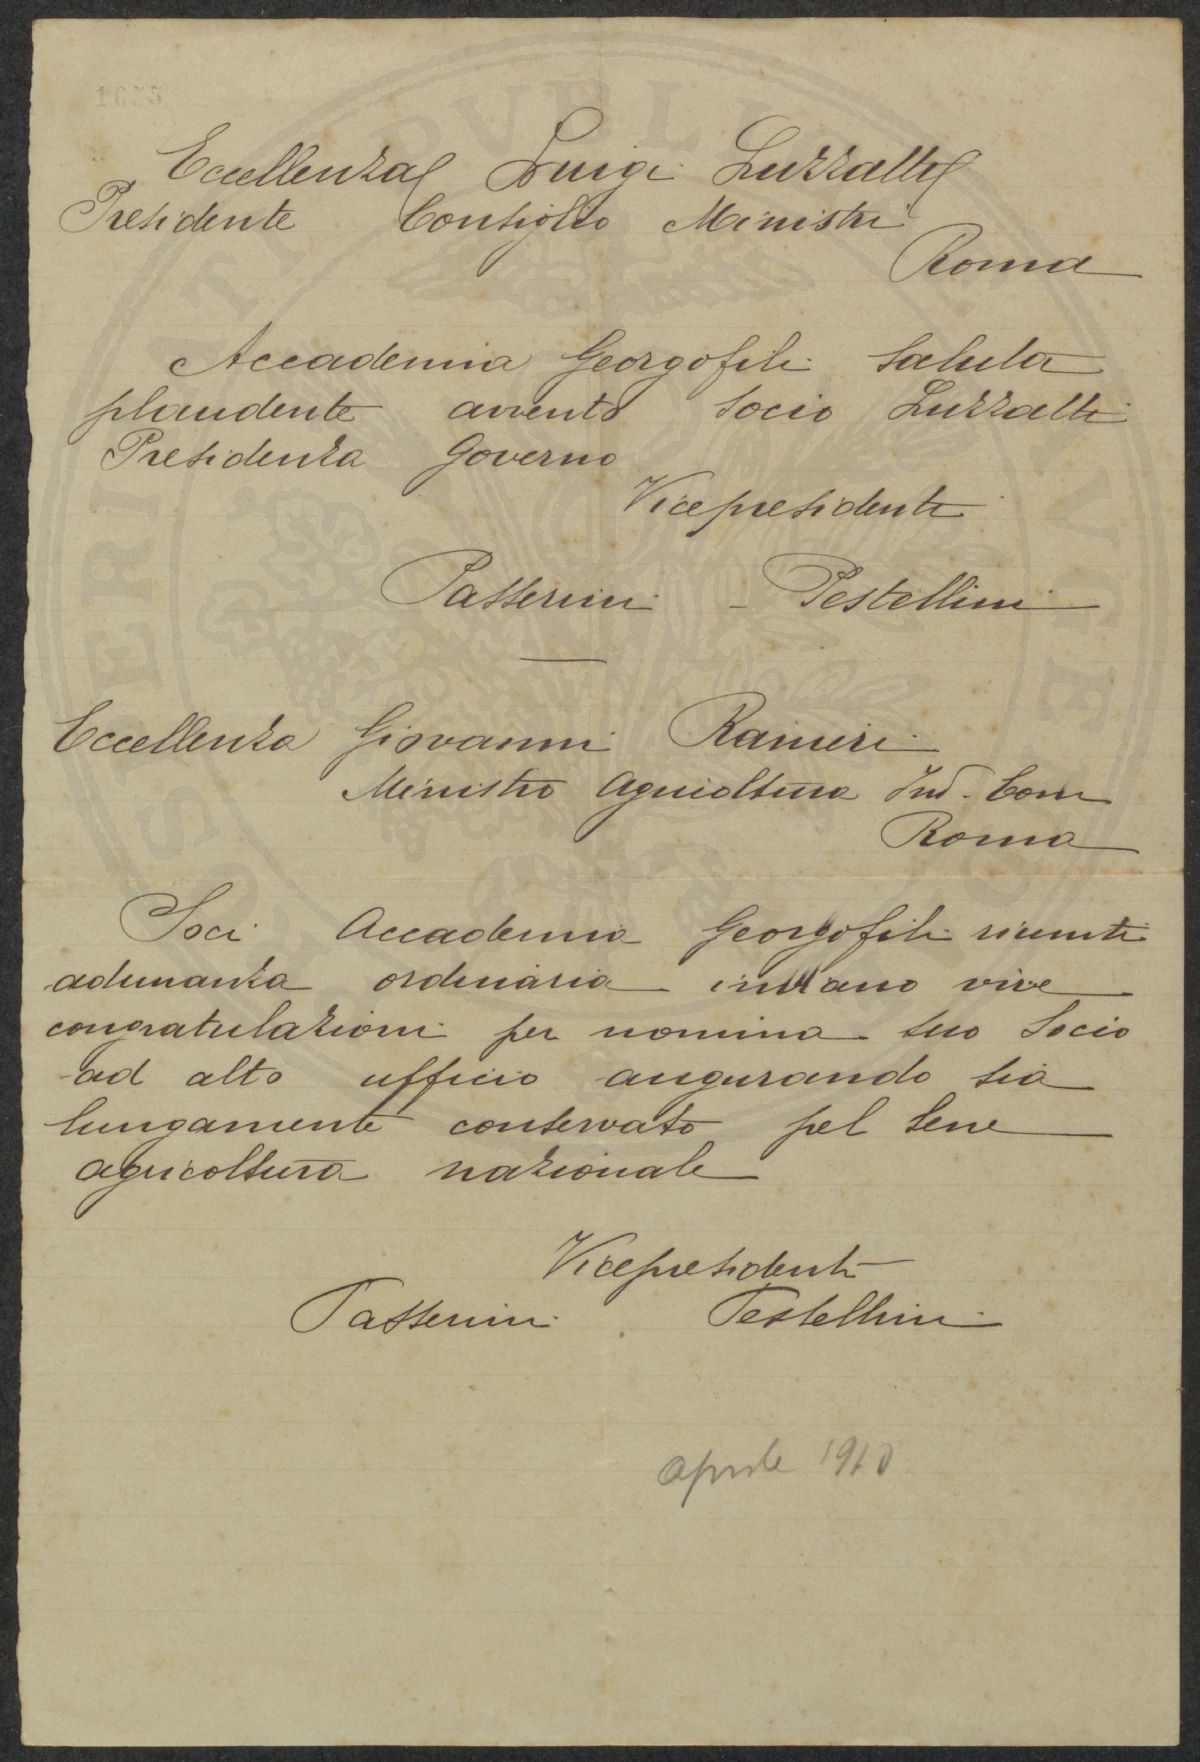 Eccellenza Luigi Luzzatti
Presidente Consiglio Ministri
Roma
Accademia Georgofili saluta
plaudente avvento socio Luzzatti
Presidenza Governo
Vicepresidenti
Passerini - Pestellini
Eccellenza Giovanni Ranieri
Ministro Agricoltura Ind. Com
Roma
Soci Accademia Georgofili riuniti
adunanza ordinaria inviano vive
congratulazioni per nomina suo Socio
ad alto ufficio augurando sia
lungamente conservato pel bene
agricoltura nazionale
Vicepresidenti
Passerini Pestellini
aprile 1910